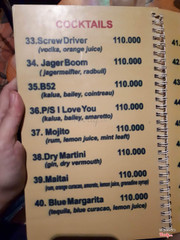 COCKTAILS
33.Screw Driver 110.000
(vocka, orange juice)
34. Jager Boom 110.000
( jagermeifter, redbull)
35.B52 110.000
(kalua, bailey, cointreau)
36.P/S I Love You 110.000
(kalua, bailey, amaretto)
37. Mojito 110.000
(rum, lemon juice, mint leaft)
38.Dry Martini 110.000
(gin, dry vermouth)
39.Maitai 110.000
(rum, orange curacao, amaretto, lemon juice, grenadine syrup)
40. Blue Margarita 110.000
(tequila, blue curacao, lemon juice)